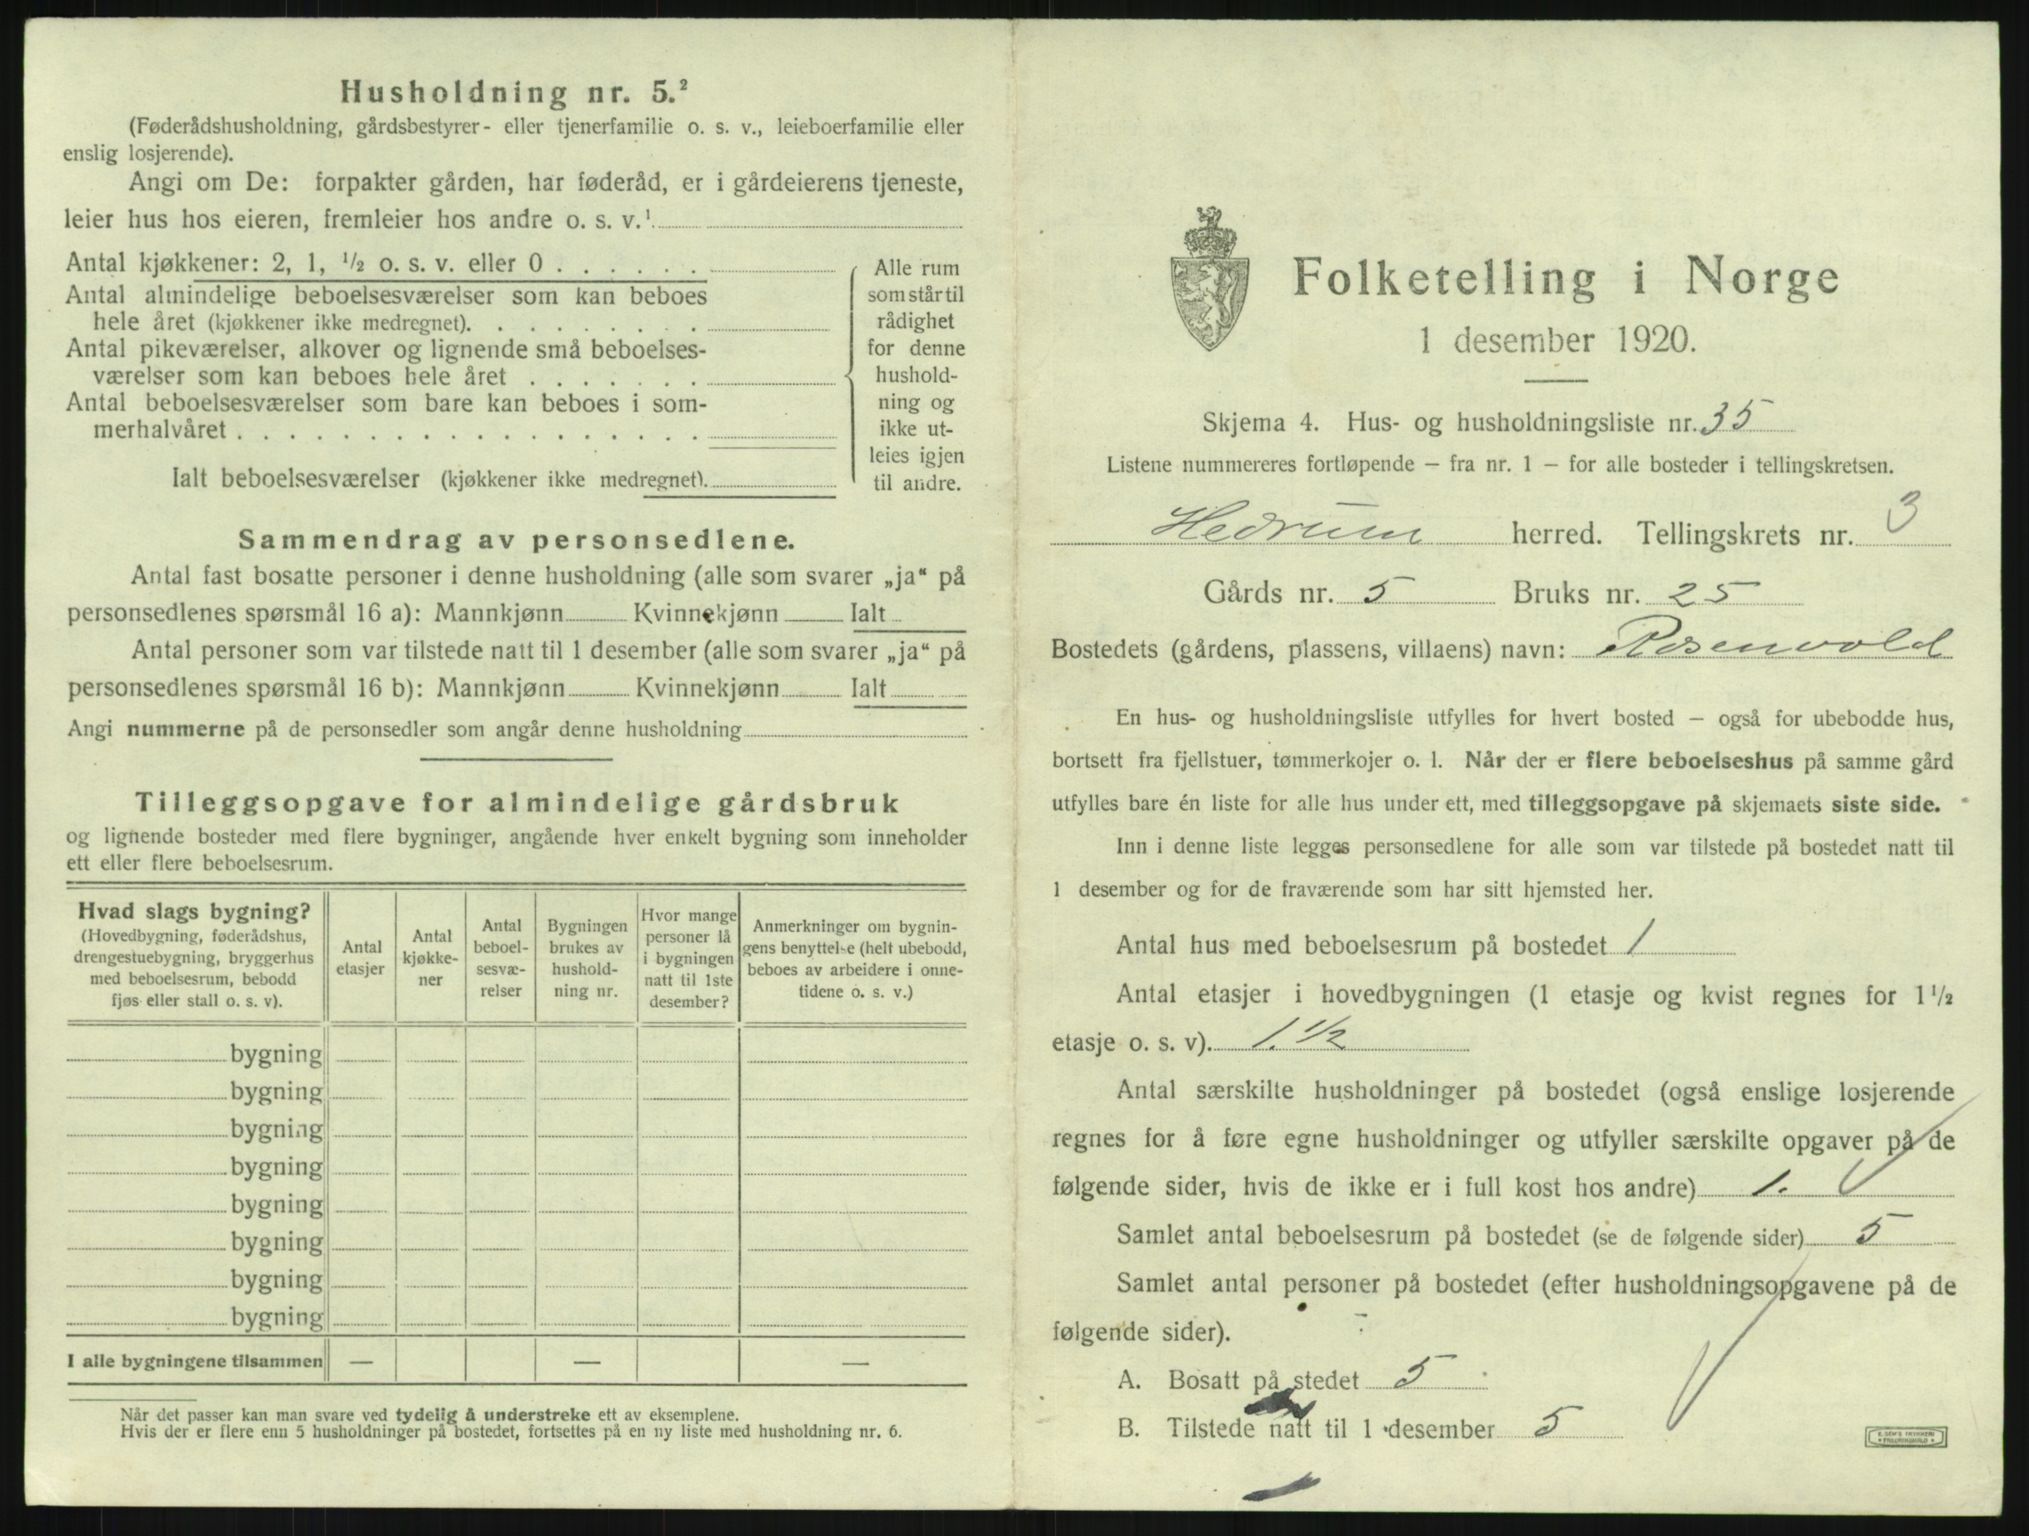 Husholdning nr. 5.²
(Føderådshusholdning, gårdsbestyrer- eller tjenerfamilie o. s. v., leieboerfamilie eller
enslig losjerende).
Angi om De: forpakter gården, har føderåd, er i gårdeierens tjeneste,
leier hus hos eieren, fremleier hos andre o. s. v.¹
Antal kjøkkener: 2, 1, ½ o. s. v. eller 0 . . . . . .
Antal almindelige beboelsesværelser som kan beboes
hele året (kjøkkener ikke medregnet). . . . . . . . .
Antal pikeværelser, alkover og lignende små beboelses-
værelser som kan beboes hele året . . . . . . .
Antal beboelsesværelser som bare kan beboes i som-
merhalvåret . . . . . . . . . . . . . . . . . .
Ialt beboelsesværelser (kjøkkener ikke medregnet).
Alle rum
som står til
rådighet
for denne
hushold-
ning og
ikke ut-
leies igjen
til andre.
Sammendrag av personsedlene.
Antal fast bosatte personer i denne husholdning (alle som svarer „ja“ på
personsedlenes spørsmål 16 a): Mannkjønn Kvinnekjønn Ialt
Antal personer som var tilstede natt til 1 desember (alle som svarer „ja“ på
personsedlenes spørsmål 16 b): Mannkjønn Kvinnekjønn Ialt
Angi nummerne på de personsedler som angår denne husholdning
Tilleggsopgave for almindelige gårdsbruk
og lignende bosteder med flere bygninger, angående hver enkelt bygning som inneholder
ett eller flere beboelsesrum.
Hvad slags bygning?
(Hovedbygning, føderådshus,
drengestuebygning, bryggerhus
med beboelsesrum, bebodd
fjøs eller stall o. s. v).
Antal
etasjer
Antal
kjøkke-
ner
Antal
beboel-
sesvæ-
relser
Bygningen
brukes av
hushold-
ning nr.
Hvor mange
personer lå
i bygningen
natt til 1ste
desember?
Anmerkninger om bygnin-
gens benyttelse (helt ubebodd,
beboes av arbeidere i onne-
tidene o. s. v.)
bygning
bygning
bygning
bygning
bygning
bygning
bygning
bygning
I alle bygningene tilsammen — — —
Når det passer kan man svare ved tydelig å understreke ett av eksemplene.
Hvis der er flere enn 5 husholdninger på bostedet, fortsettes på en ny liste med husholdning nr. 6.
Folketelling i Norge
1 desember 1920.
Skjema 4. Hus- og husholdningsliste nr. 35
Listene nummereres fortløpende – fra nr. 1 – for alle bosteder i tellingskretsen.
Hedrum herred. Tellingskrets nr. 3
Gårds nr. 5 Bruks nr. 25
Bostedets (gårdens, plassens, villaens) navn: Rosenvold
En hus- og husholdningsliste utfylles for hvert bosted – også for ubebodde hus,
bortsett fra fjellstuer, tømmerkojer o. l. Når der er flere beboelseshus på samme gård
utfylles bare én liste for alle hus under ett, med tilleggsopgave på skjemaets siste side.
Inn i denne liste legges personsedlene for alle som var tilstede på bostedet natt til
1 desember og for de fraværende som har sitt hjemsted her.
Antal hus med beboelsesrum på bostedet 1
Antal etasjer i hovedbygningen (1 etasje og kvist regnes for 1½
etasje o. s. v). 1.½
Antal særskilte husholdninger på bostedet (også enslige losjerende
regnes for å føre egne husholdninger og utfyller særskilte opgaver på de
følgende sider, hvis de ikke er i full kost hos andre) 1.
Samlet antal beboelsesrum på bostedet (se de følgende sider) 5
Samlet antal personer på bostedet (efter husholdningsopgavene på de
følgende sider).
A. Bosatt på stedet 5
B. Tilstede natt til 1 desember 5